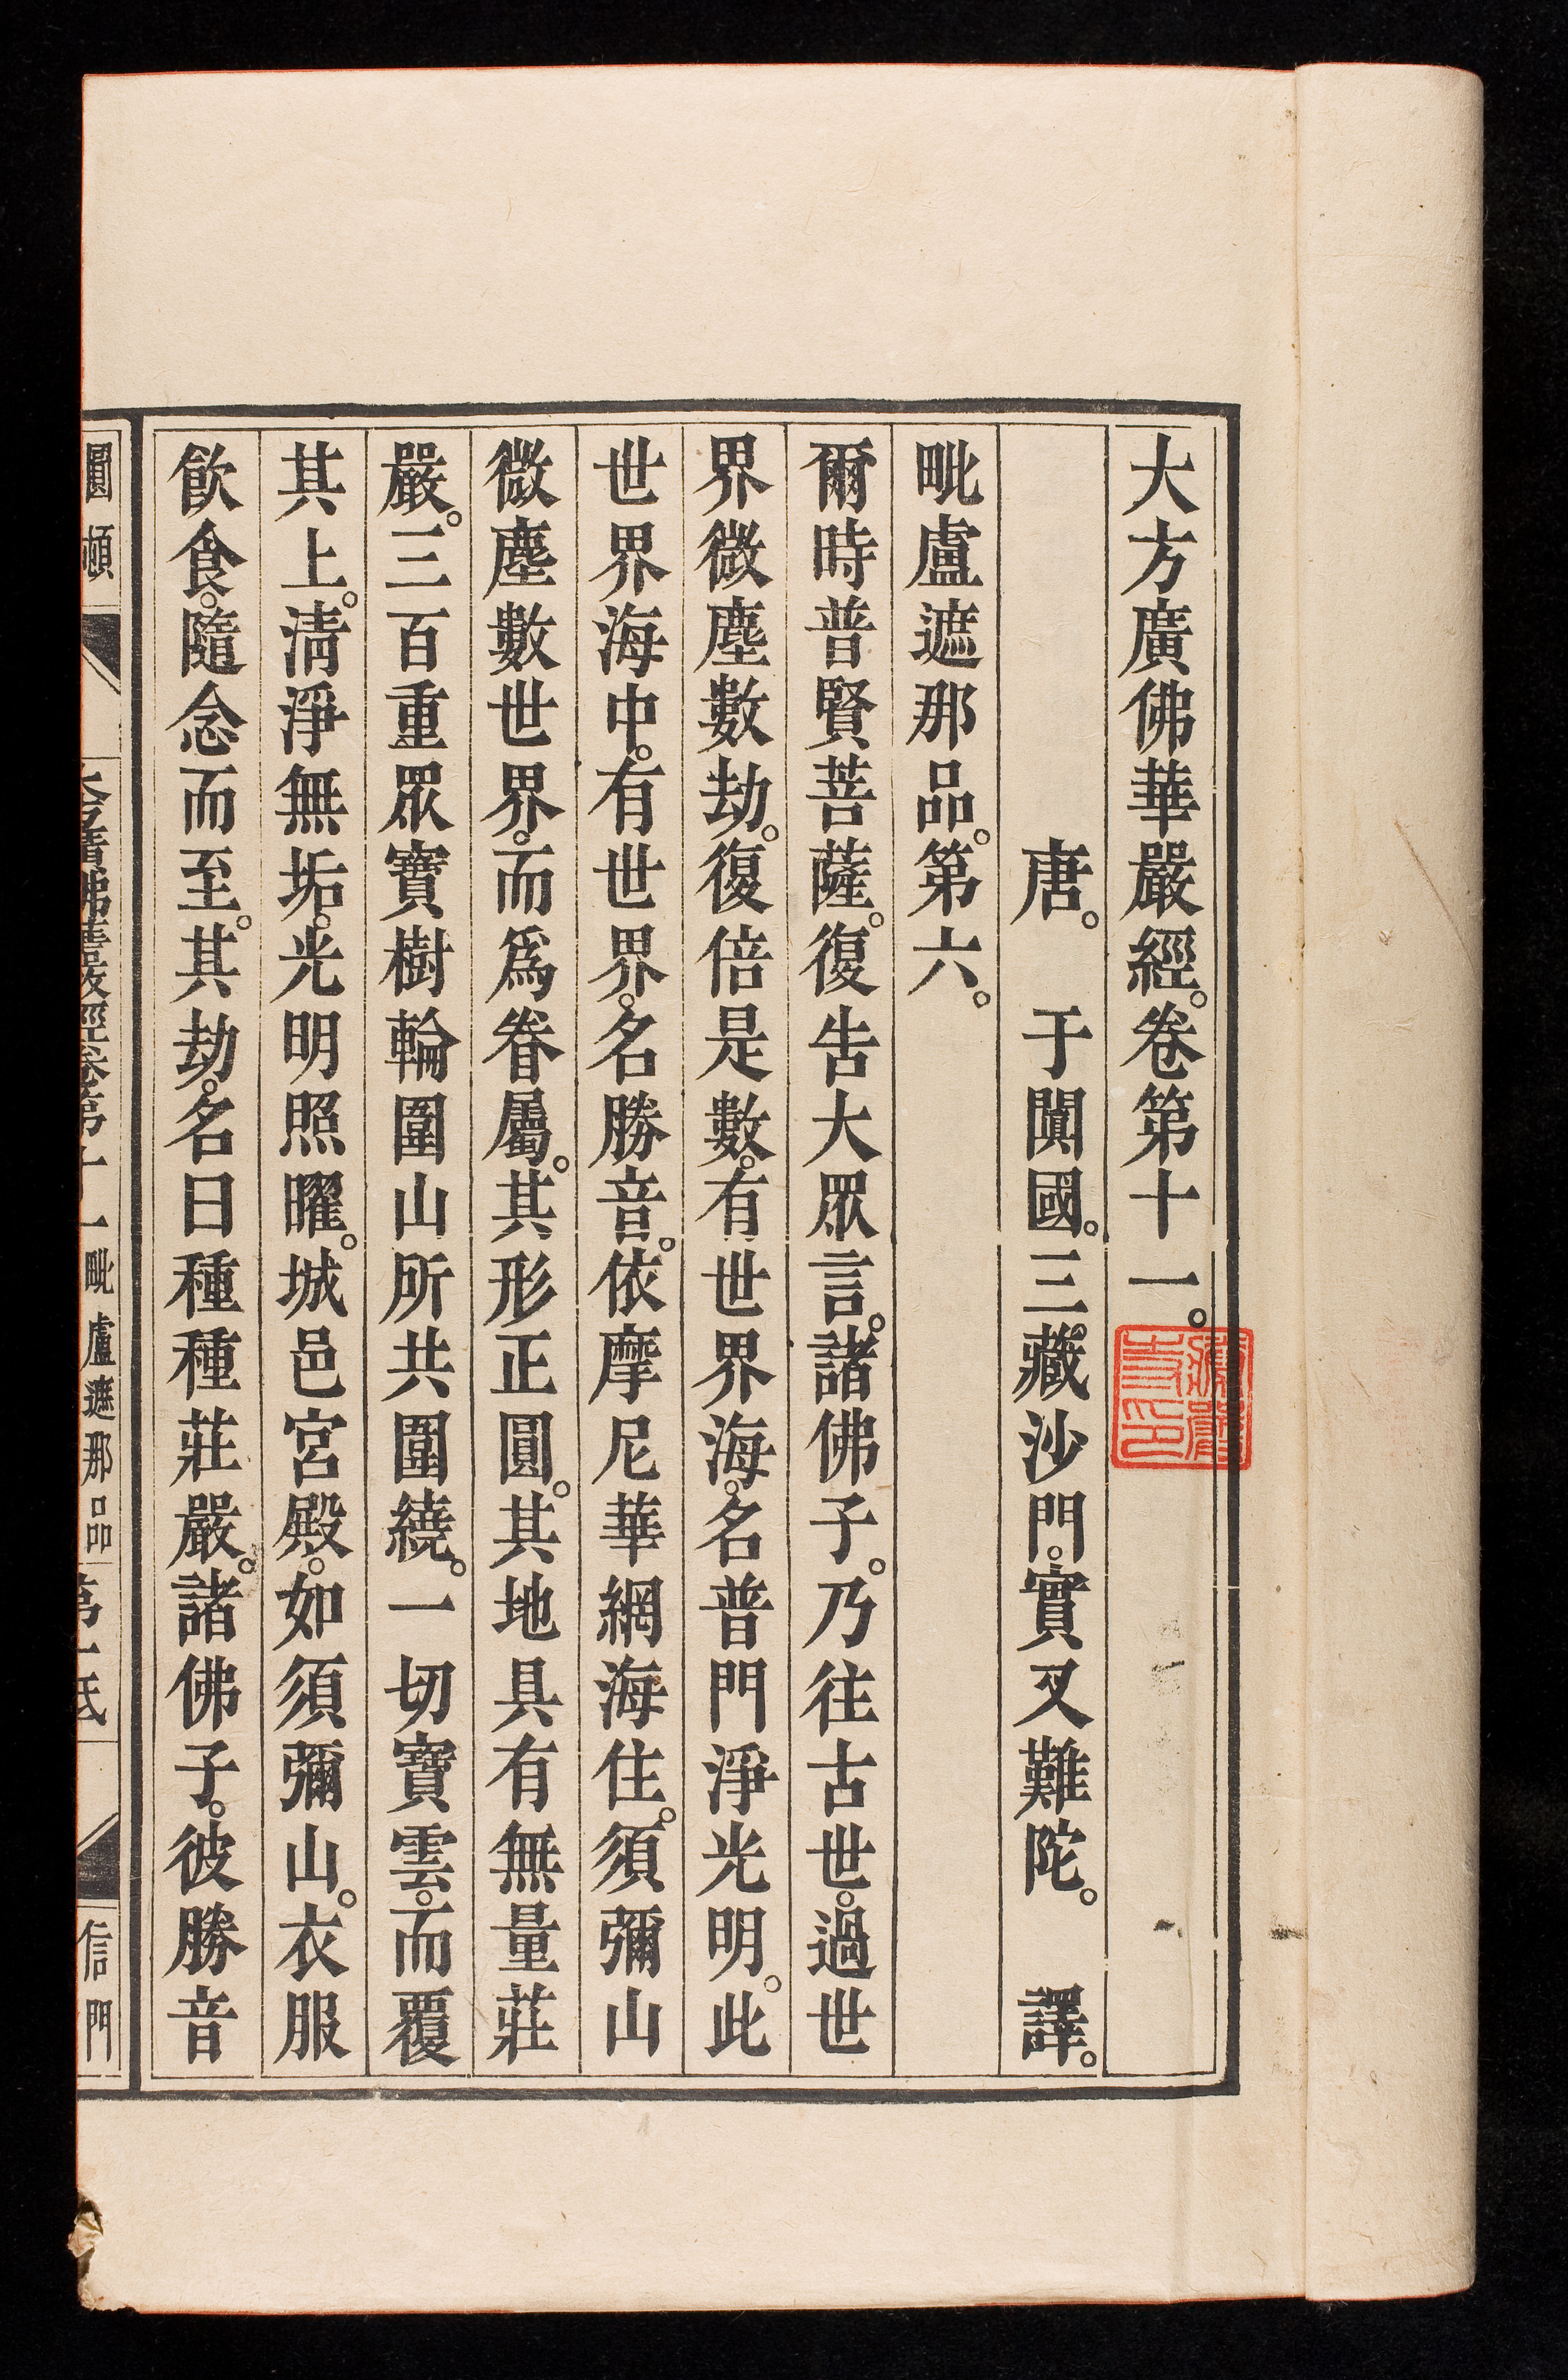 大方廣佛華嚴經。卷第十一。
唐。于闐國。三藏沙門。實叉難陀。譯。
毗盧遮那品。第六。
爾時普賢菩薩。復告大眾言。諸佛子。乃往古世。過世
界微塵數劫。復倍是數。有世界海。名普門淨光明。此
世界海中。有世界。名勝音。依摩尼華網海住。須彌山
微塵數世界。而為眷屬。其形正圓。其地具有無量莊
嚴。三百重眾寶樹輪圍山所共圍繞。一切寶雲。而覆
其上。清淨無垢。光明照曜。城邑宮殿。如須彌山。衣服
飲食。隨念而至。其劫。名曰種種莊嚴。諸佛子。彼勝音
圓頓
佛華嚴經卷第十一
毗盧遮那品
第一
信門